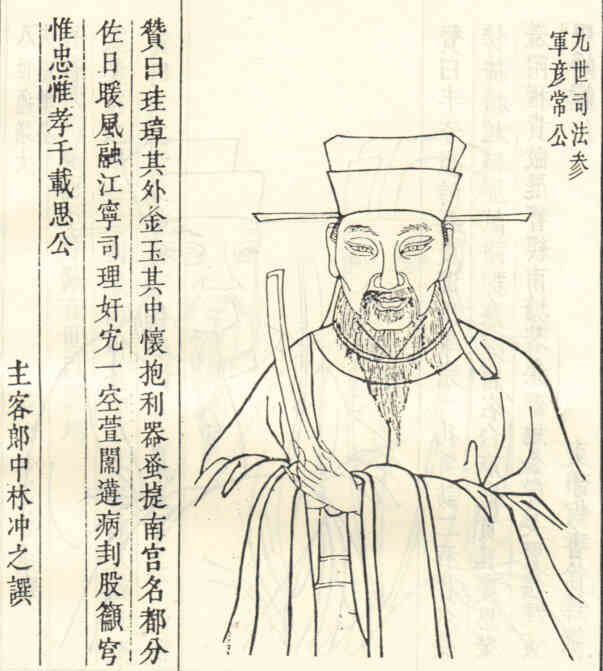 九世司法参
軍彦常公
賛曰珪璋其外金玉其中懷抱利器蚤捷南宫名都分
佐日暖風融江寧司理奸宄一空萱闈遘病刲股籲穹
惟忠惟孝千載思公
主客郎中林冲之譔